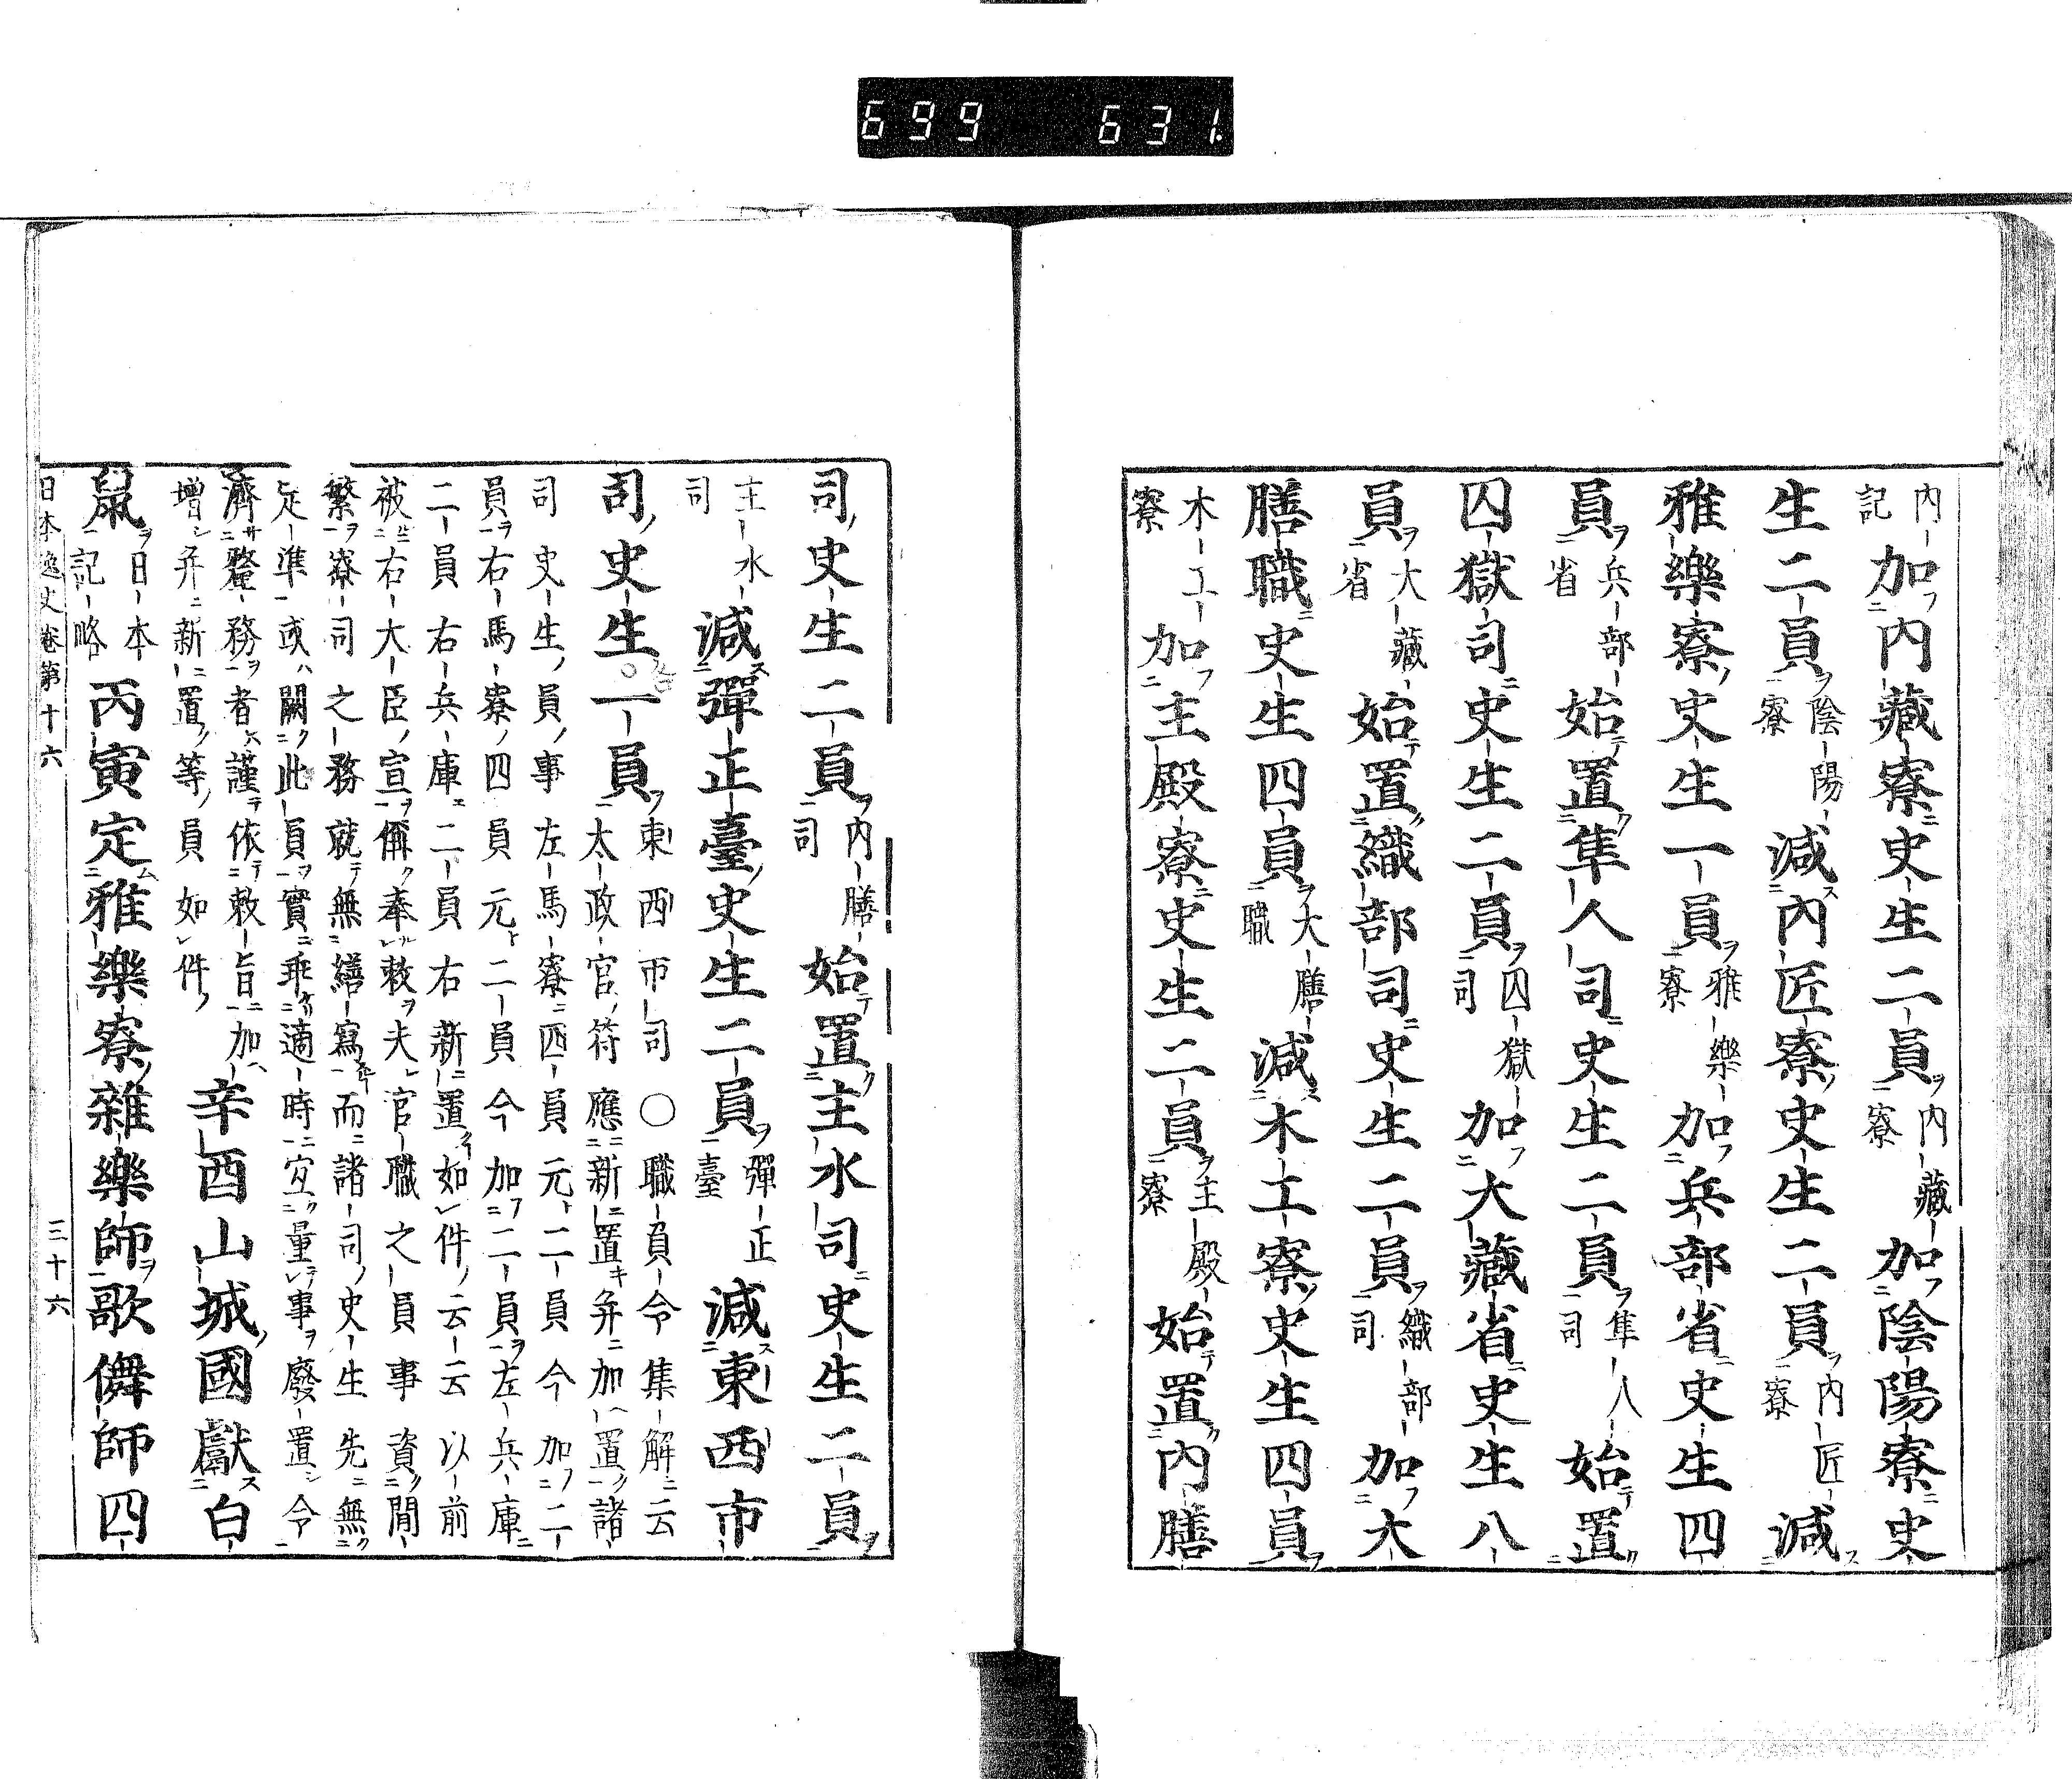 699 631.
內記加內藏寮史生二員內藏寮加陰陽寮史
生二員陰陽寮減內匠寮史生二員內匠寮減
雅樂寮史生一員雅樂寮加兵部省史生四
員兵部省始置隼人司史生二員隼人司始置
囚獄司史生二員囚獄司加大藏省史生八
員大藏省始置織部司史生二員織部司加大
膳職史生四員大膳職減木工寮史生四員
木工寮加主殿寮史生二員主殿寮始置內膳
司史生二員內膳司始置主水司史生二員
主水司減彈正臺史生二員彈正臺減東西市
司史生一員東西市司○職員令集解云太政官符應新置并加置諸
司史生員事左馬寮四員元二員今加二
員右馬寮四員元二員今加二員左兵庫
二員右兵庫二員右新置如件云云以前
被右大臣宣偁奉敕夫官職之員事資閒
繁寮司之務就無繕寫而諸司史生先無
定準或闕此員實乖適時宜量事廢置令
濟釐務者謹依敕旨加
增并新置等員如件辛酉山城國獻白
鼠日本記略丙寅定雅樂寮雜樂師歌儛師四
日本逸史卷第十六 三十六